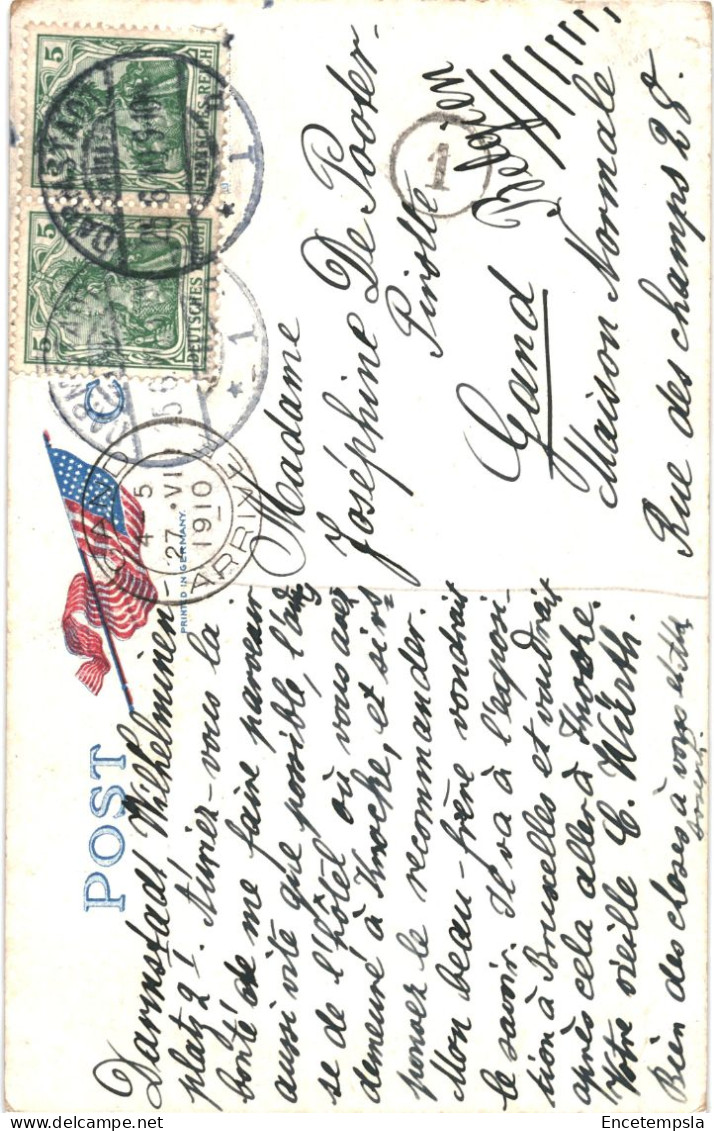 POST C
PRINTED IN GERMANY.
Darmstadt Wilhelminen
platz 2 I. Auriez-vous la
bonté de me faire parvenir
aussi vite que possible, l'
se de l'hôtel où vous avez
demeuré à Knocke, et si vs
pouvez le recommander.
Mon beau-frère voudrait
le savoir. Il va à l'exposi-
tion à Bruxelles et voudrait
après cela aller à Knocke.
Votre vieille C. Würth.
Bien des choses à vous
5
DEUTSCHES REICH
5 5
DEUTSCHES REICH
DARMSTADT
1
1
GAND
4-5
27 VI
1910
ARRIVEE
Madame
Joséphine De Pooter-
Pirotte
1
Gand Belgien
Maison Normale
Rue des champs 28.
©Encetempsla